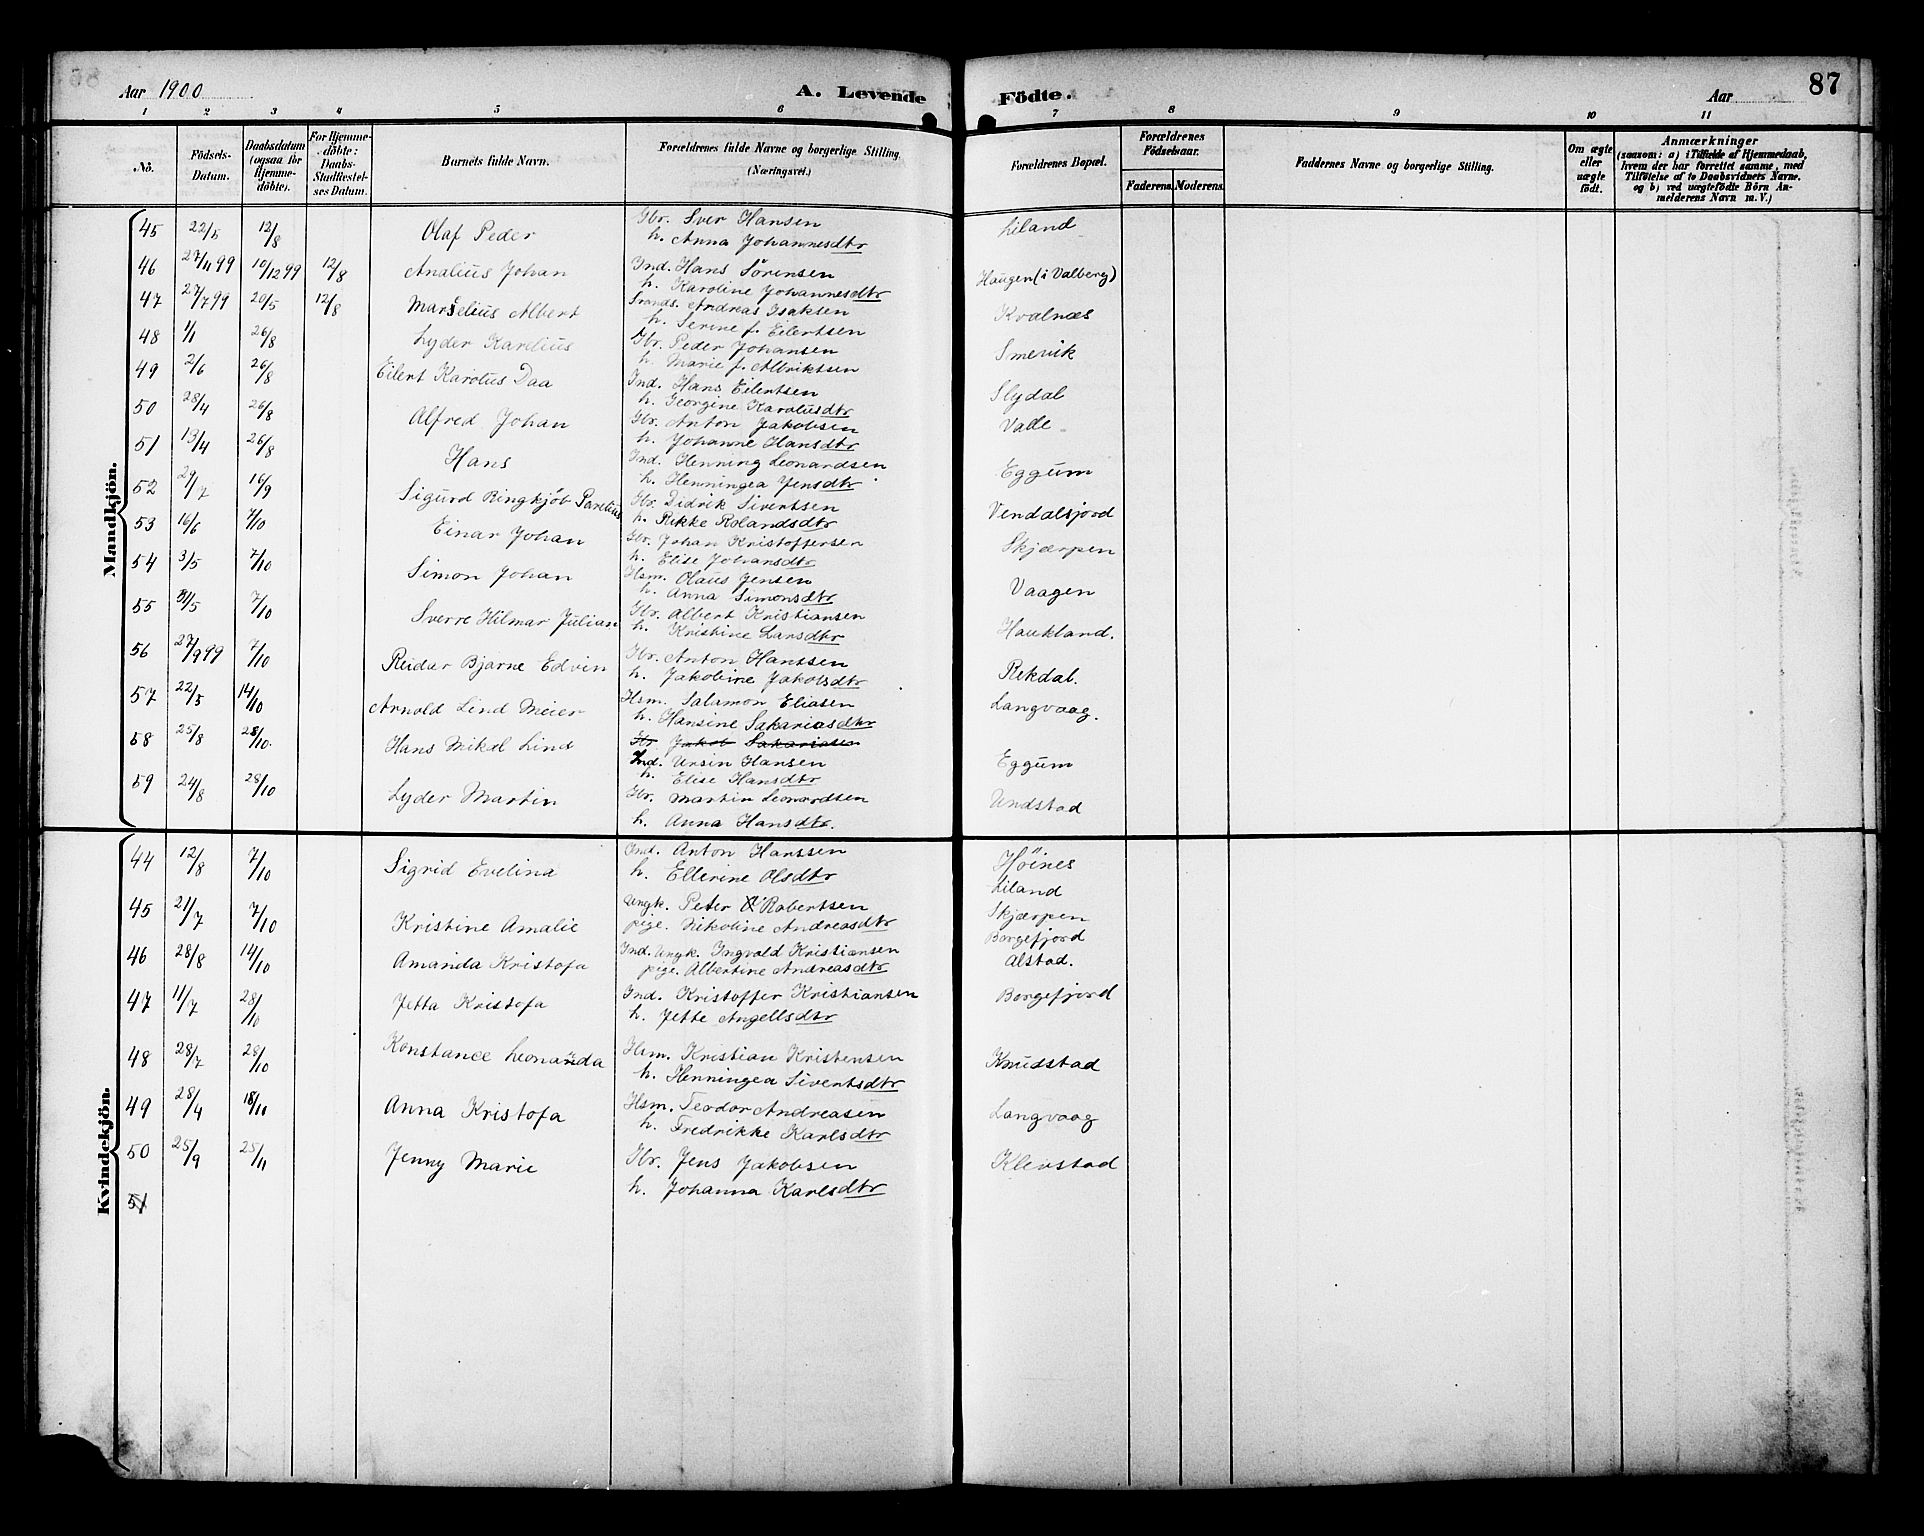 Aar 1900
A. Levende
Födte.
Aar
87
1 2 3 4 5 6 7 8 9 10 11
No.
Födsels-Datum.
Daabsdatum (ogsaa for Hjemme-döbte).
For Hjemme-döbte: Daabs-Stadfæstel-ses Datum.
Barnets fulde Navn.
Forældrenes fulde Navne og borgerlige Stilling. (Næringsvei.)
Forældrenes Bopæl.
Forældrenes Födselsaar.
Faderens. Moderens.
Faddernes Navne og borgerlige Stilling.
Om ægte eller uægte födt.
Anmærkninger
(saasom: a) i Tilfælde af Hjemmedaab, hvem der har forrettet samme, med Tilföielse af to Daabsvidners Navne, og b) ved uægtefödte Börn An-melderens Navn m. V.)
Mandkjön.
45 22/5 12/8 Olaf Peder Gbr. Sver Hansen Liland
h. Anna Johannesdtr
46 27/11 99 10/12 99 12/8 Analius Johan Ind. Hans Sörensen Haugen (i Valberg)
h. Karoline Johannesdtr
47 27/7 99 20/5 12/8 Marselius Albert Strands. Andreas Isaksen Kvalnæs
h. Serine f. Eilertsen
48 1/1 26/8 Lyder Karelius Gbr. Peder Johansen Smervik
h. Marie f. Albriktsen
49 2/6 26/8 Eilert Karolus Daa Ind. Hans Eilertsen Slydal
h. Georgine Karolusdtr
50 28/4 26/8 Alfred Johan Gbr. Anton Jakobsen Valle
h. Johanne Hansdtr
51 13/4 26/8 Hans Ind. Henning Leonardsen Eggum
h. Henningea Jensdtr
52 29/7 16/9 Sigurd Ringkjöb Parelius Gbr. Didrik Sivertsen Vendalsjord
h. Rikke Rolandsdtr
53 16/6 7/10 Einar Johan Gbr. Johan Kristoffersen Skjærpen
h. Elise Johansdtr
54 3/5 7/10 Simon Johan Hsm. Olaus Jensen Vaagen
h. Anna Simonsdtr
55 31/5 7/10 Sverre Hilmar Julian Gbr. Albert Kristiansen Haukland.
h. Kristine Larsdtr
56 27/9 99 7/10 Reidar Bjarne Edvin Gbr. Anton Hanssen Rekdal.
h. Jakobine Jakobsdtr
57 22/5 14/10 Arnold Lind Meier Hsm. Salamon Eliasen Langvaag.
h. Hansine Sakariasdtr
58 25/8 28/10. Hans Mikal Lind Gbr Jakob Sakariasen
Ind. Ursin Hansen Eggum
h. Elise Hansdtr
59 24/8 28/10 Lyder Martin Gbr. Martin Leonardsen Undstad
h. Anna Hansdtr.
Kvindekjön.
44 12/8 7/10 Sigrid Evelina Ind. Anton Hanssen Höines
h. Ellerine Olsdtr
Liland
45 21/7 7/10 Kristine Amalie Ungk. Peter Robertsen Skjærpen
pige. Nikoline Andreasdtr Borgefjord
46 28/8 14/10 Amanda Kristofa Ind. Ungk. Ingvald Kristiansen Alstad.
pige. Albertine Andreasdtr
47 11/7 28/10 Jetta Kristofa Ind. Kristoffer Kristiansen Borgefjord
h. Jette Angellsdtr
48 28/7 28/10 Konstance Leonarda Hsm. Kristian Kristensen Knudstad
h. Henningea Sivertsdtr
49 28/4 18/11 Anna Kristofa Hsm. Teodor Andreasen Langvaag
h. Fredrikke Karlsdtr
50 25/9 25/11 Jenny Marie Gbr. Jens Jakobsen Klevstad
h. Johanna Karlsdtr
51